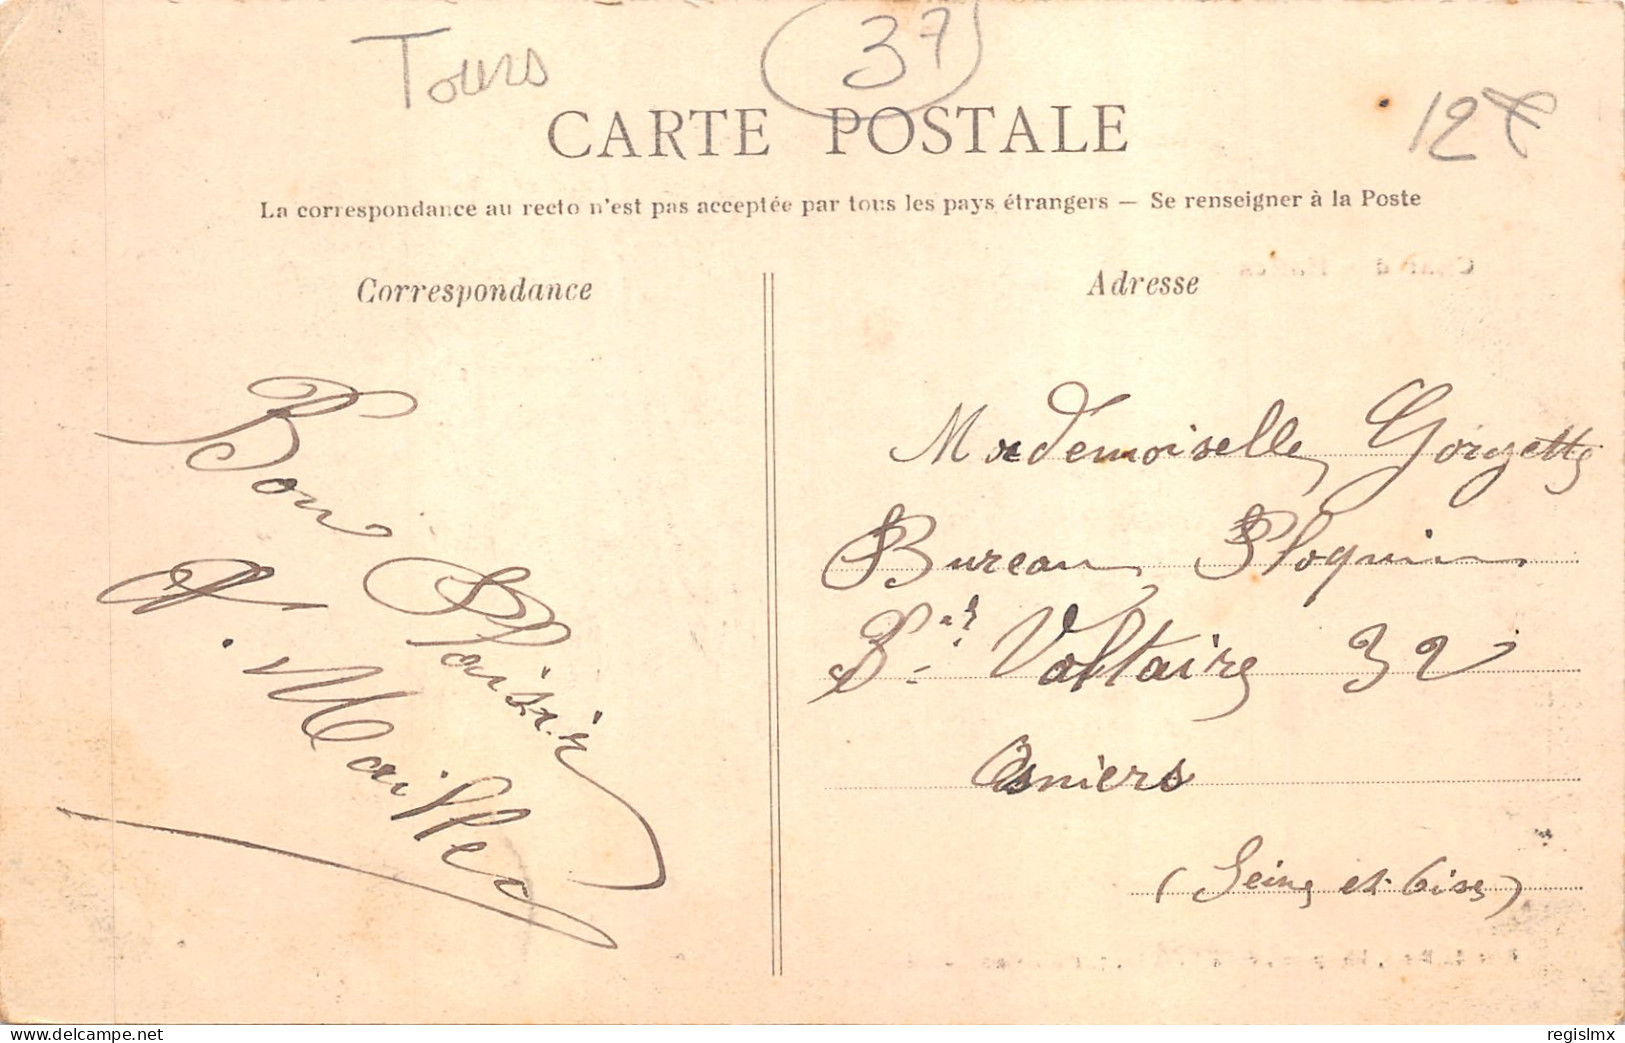 Tours
37
12€
CARTE POSTALE
La correspondance au recto n'est pas acceptée par tous les pays étrangers — Se renseigner à la Poste
Correspondance
Bon Plaisir
A. Maillet
Adresse
Mademoiselle Gorgette
Bureau Ploquin
Voltaire 32
Asniers
(Seine et Oise)
www.delcampe.net
regislmx